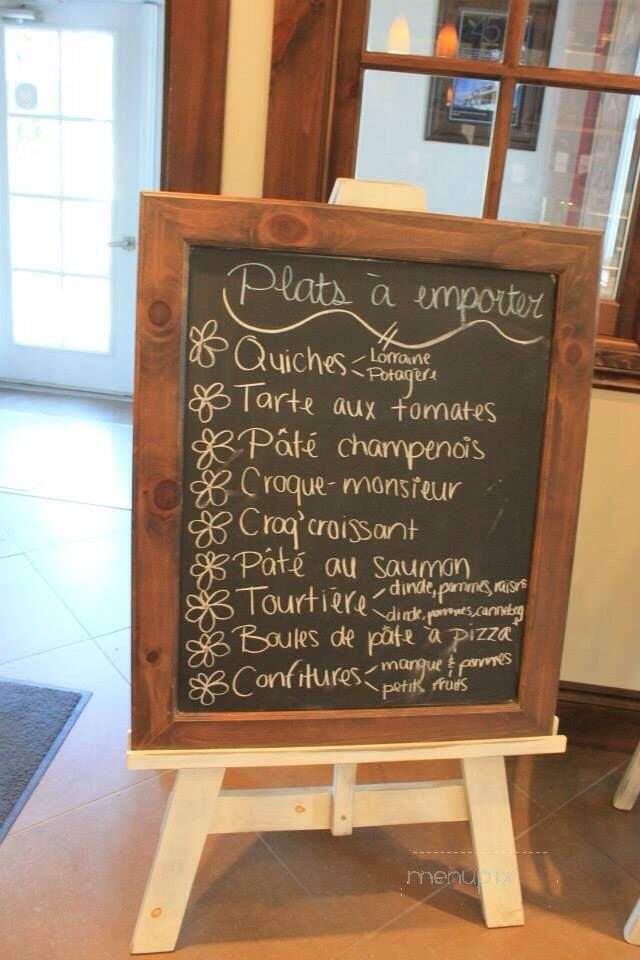 Plats à emporter
Quiches < Lorraine
Potagère
Tarte aux tomates
Pâté champenois
Croque-monsieur
Croq'croissant
Pâté au saumon
Tourtière < dinde, pommes, raisins
dinde, pommes, canneberg
Boules de pâte à pizza
Confitures < mangue & pommes
petits fruits
menupix